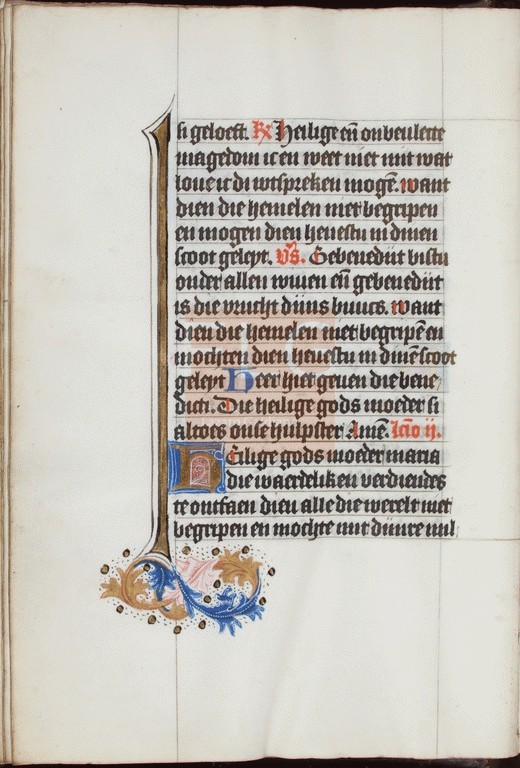 si geloeft. R Heilige en̄ onbeulecte
magedom ic en weet niet mit wat
loue ic di wtspreken mogē. want
dien die hemelen niet begripen
en mogen dien heuestu in dinen
scoot geleyt. Vs. Gebenedijt bistu
onder allen wiuen en̄ gebenedijt
is die vrucht dijns buucs. want
dien die hemelen niet begripē en
mochten dien heuestu in dinē scoot
geleyt Heer hier geuen die bene/
dicti. Die heilige gods moeder si
altoes onse hulpster Amē. lc̄io ij.
Heilige gods moeder maria
die waerdeliken verdiendes
te ontfaen dien alle die werelt niet
begripen en mochte mit dijnre mil